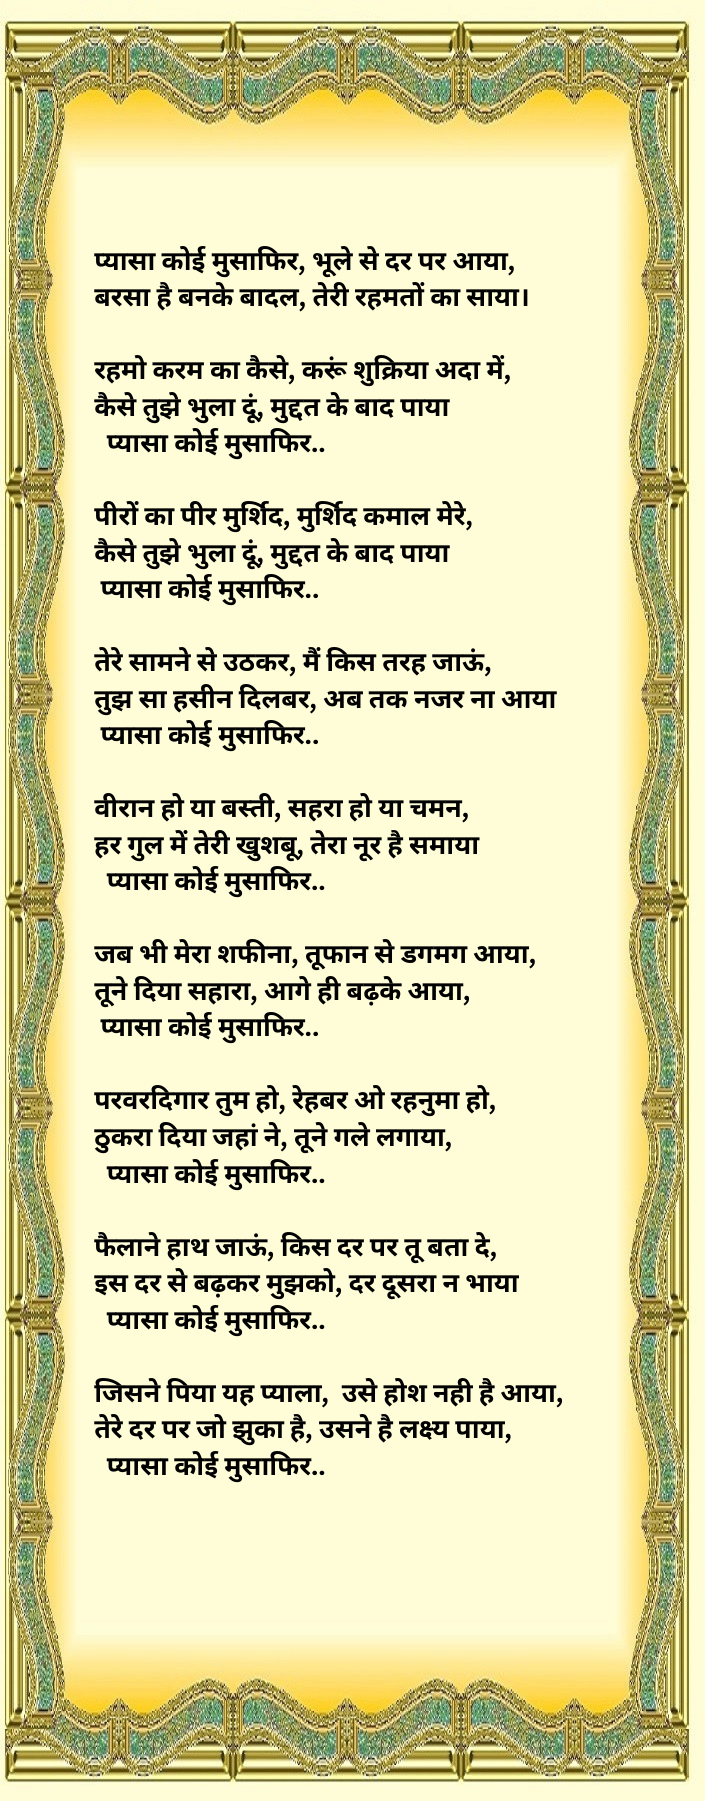 प्यासा कोई मुसाफिर, भूले से दर पर आया,
बरसा है बनके बादल, तेरी रहमतों का साया।
रहमो करम का कैसे, करूं शुक्रिया अदा में,
कैसे तुझे भुला दूं, मुद्दत के बाद पाया
प्यासा कोई मुसाफिर..
पीरों का पीर मुर्शिद, मुर्शिद कमाल मेरे,
कैसे तुझे भुला दूं, मुद्दत के बाद पाया
प्यासा कोई मुसाफिर..
तेरे सामने से उठकर, मैं किस तरह जाऊं,
तुझ सा हसीन दिलबर, अब तक नजर ना आया
प्यासा कोई मुसाफिर..
वीरान हो या बस्ती, सहरा हो या चमन,
हर गुल में तेरी खुशबू, तेरा नूर है समाया
प्यासा कोई मुसाफिर..
जब भी मेरा शफीना, तूफान से डगमग आया,
तूने दिया सहारा, आगे ही बढ़के आया,
प्यासा कोई मुसाफिर..
परवरदिगार तुम हो, रेहबर ओ रहनुमा हो,
ठुकरा दिया जहां ने, तूने गले लगाया,
प्यासा कोई मुसाफिर..
फैलाने हाथ जाऊं, किस दर पर तू बता दे,
इस दर से बढ़कर मुझको, दर दूसरा न भाया
प्यासा कोई मुसाफिर..
जिसने पिया यह प्याला, उसे होश नही है आया,
तेरे दर पर जो झुका है, उसने है लक्ष्य पाया,
प्यासा कोई मुसाफिर..